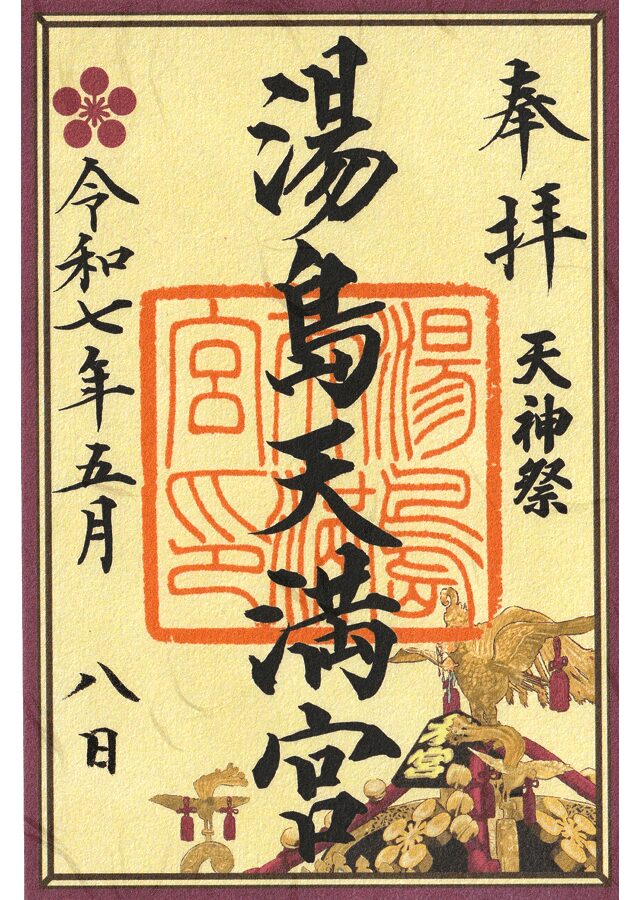 奉拝
天神祭
湯島天満宮
湯島天満宮印
令和七年五月八日
本宮